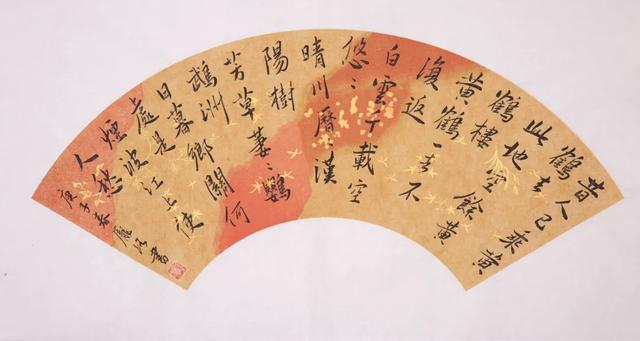 昔人已乘黄
鶴去
此地空餘黄
鶴樓
黄鶴一去不
復返
白雲千載空
悠〻
晴川曆漢
陽樹
芳草萋〻鸚
鵡洲鄉關何
日暮是
處
煙波江上使
人愁
庚子春 龐 書